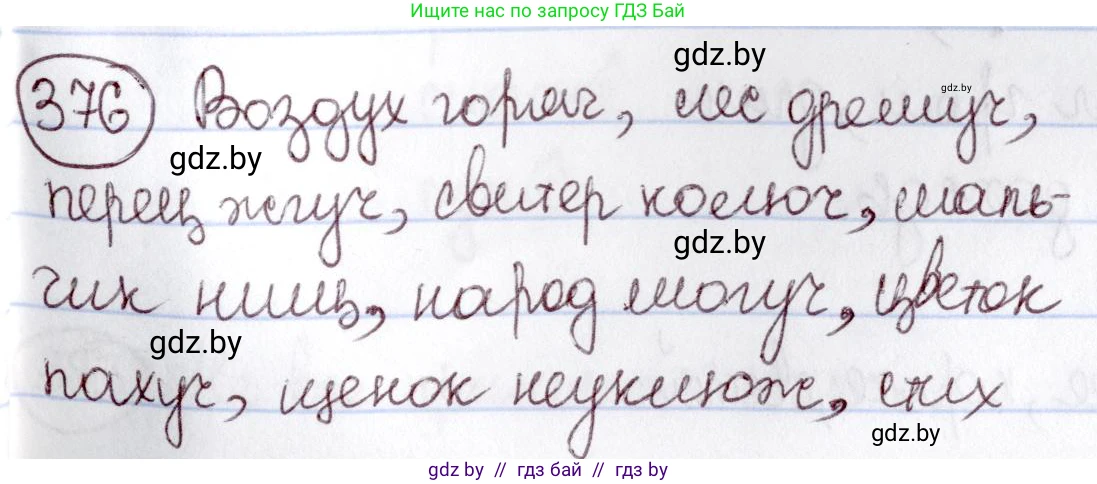 Ищите нас по запросу ГДЗ Бай
gdz.by
376 Воздух горяч, лес дремуч,
gdz.by
gdz.by
перец жгуч, свитер колюч, маль-
gdz.by
чик нищ, народ могуч, цветок
gdz.by
пахуч, щенок неуклюж, стих
gdz.by
gdz.by // гдз бай // гдз by